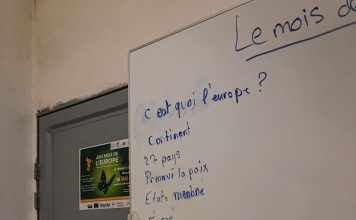 Le mois d
C'est quoi l'europe ?
Continent
27 pays
Promouvé la paix
Etats membre
MOIS DE
L'EUROPE